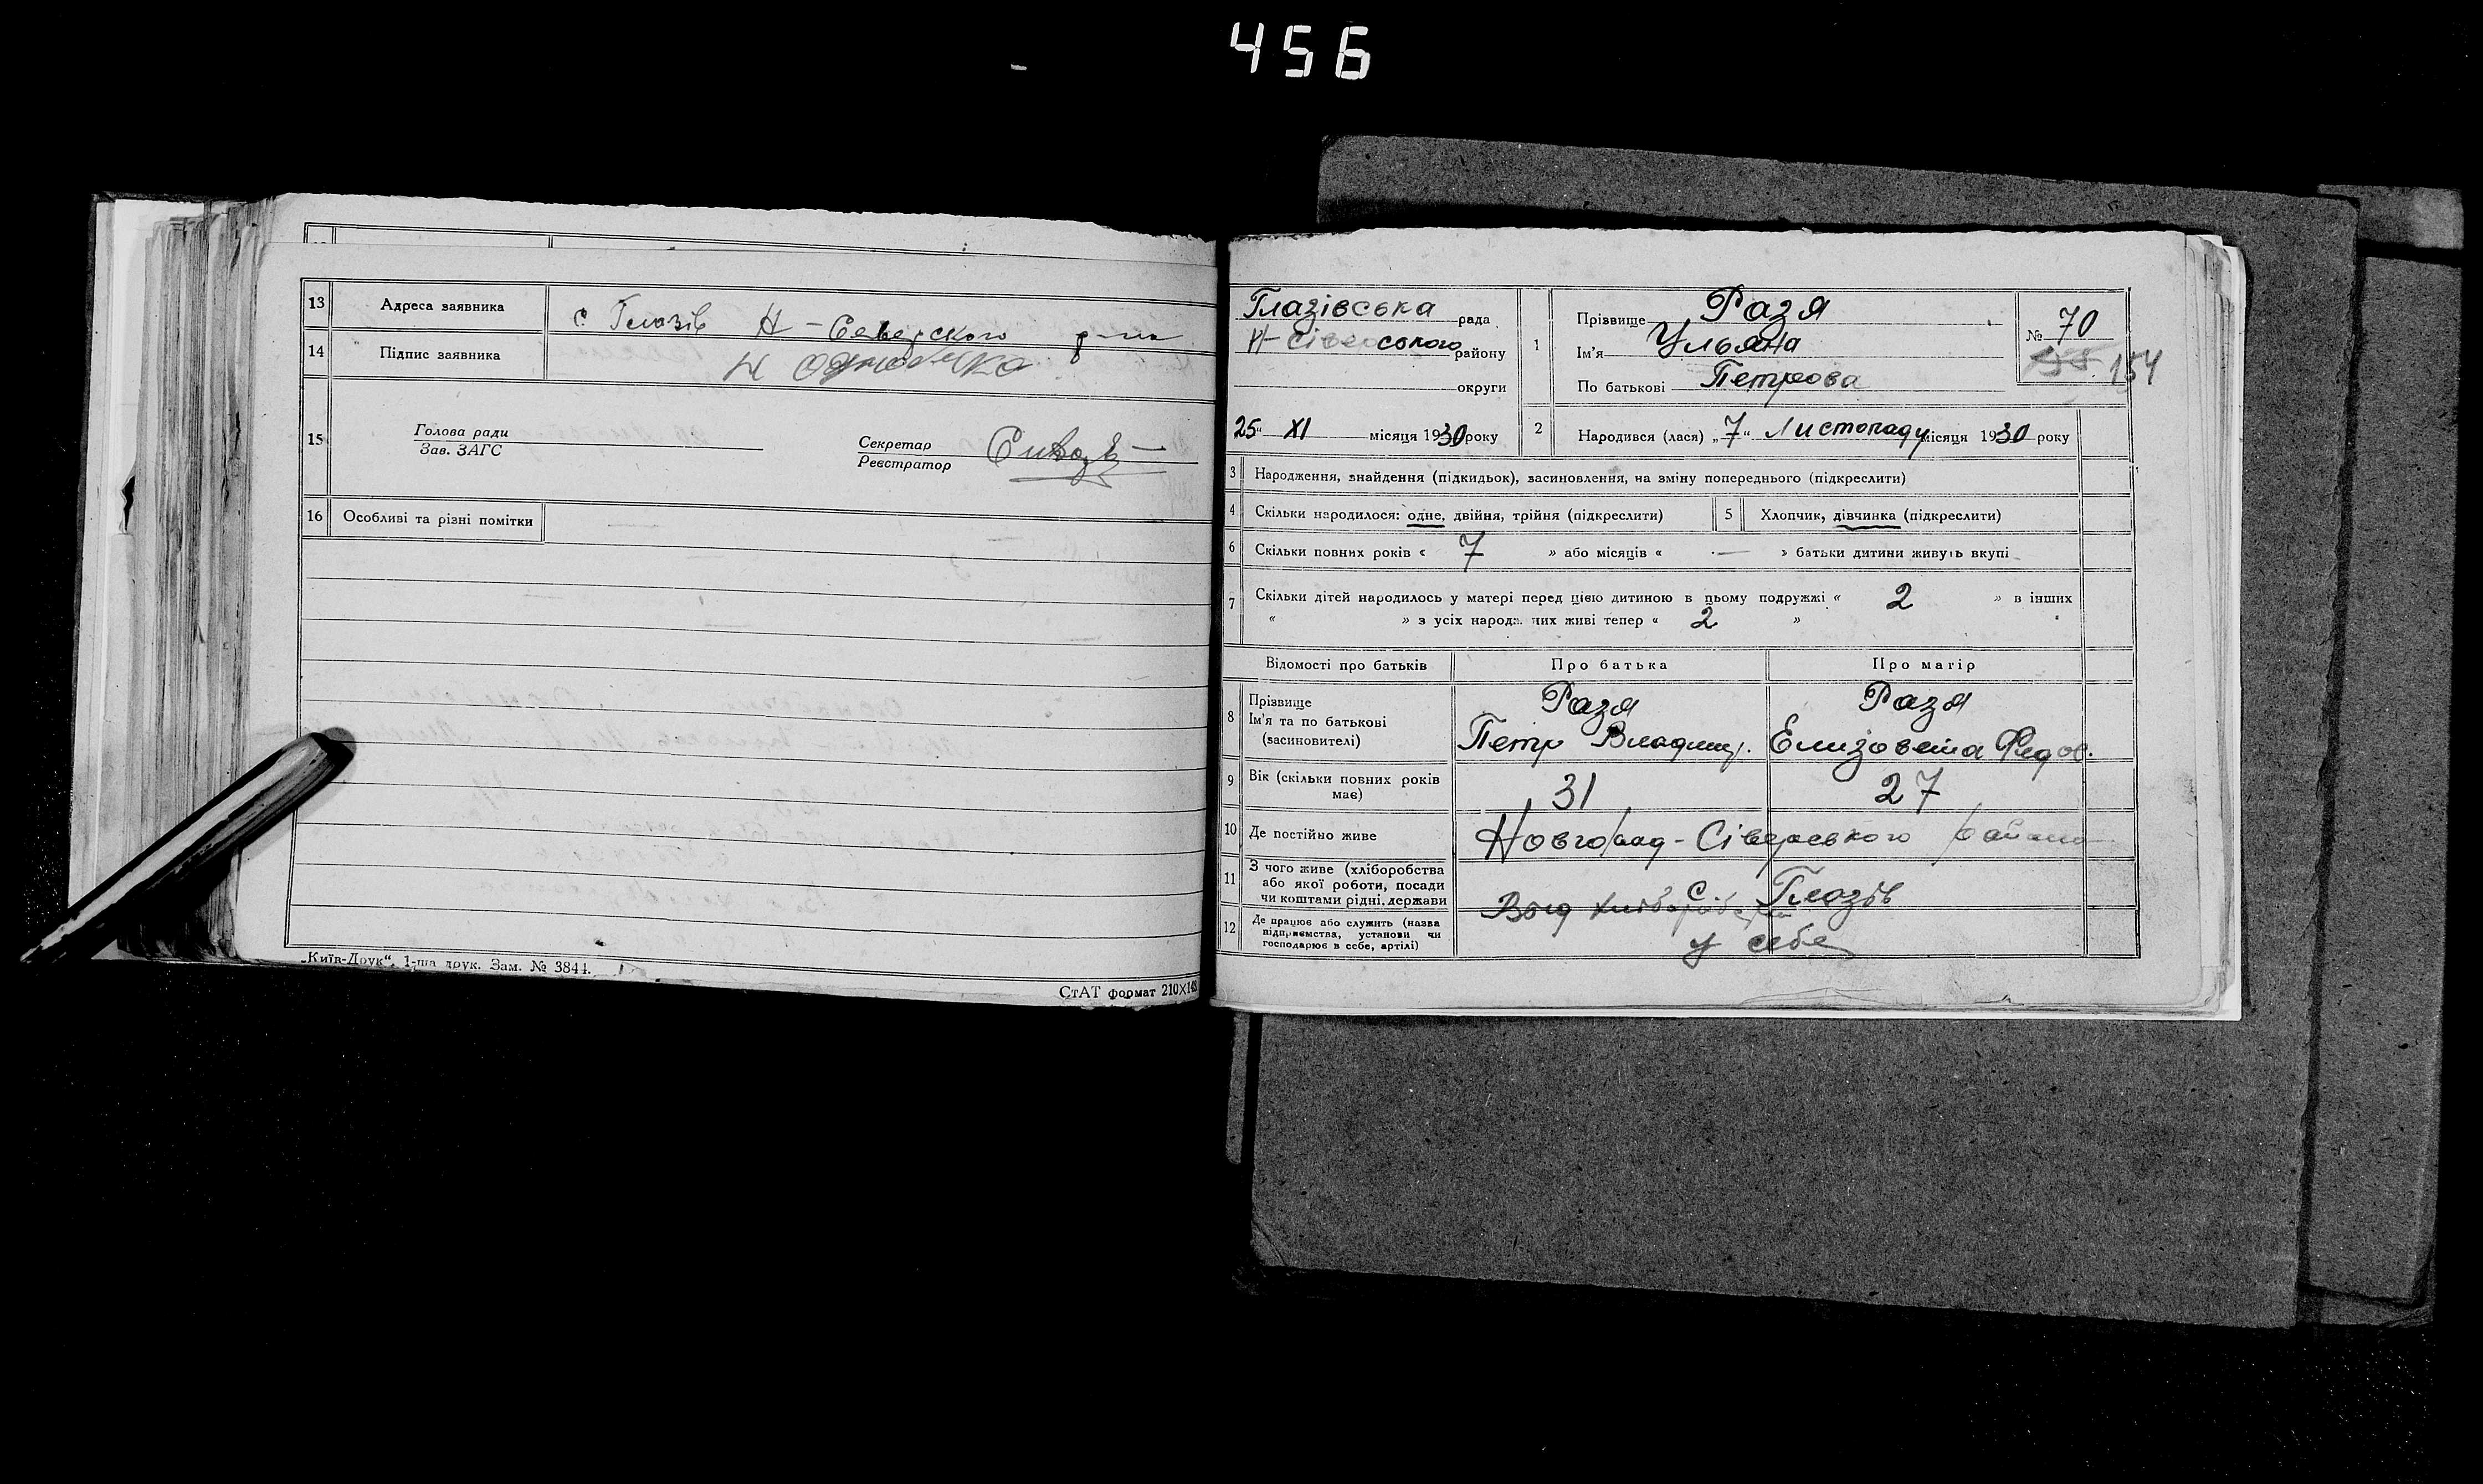 456
13 Адреса заявника с Глазів Н-Северского р-на
14 Підпис заявника
15 Голова ради
Зав. ЗАГС
Секретар
Реєстратор
16 Особливі та різні помітки —
„Київ-Друк“, 1-ша друк. Зам. № 3844.
СтАТ формат 210×14
Глазівська рада
Н-Сіверського району
округи
25 " XI місяця 1930 року
1 Прізвище Разя
Ім'я Ульяна
По батькові Петрова
№ 70
154
2 Народився (лася) „7“ Листопаду місяця 1930 року
3 Народження, знайдення (підкидьок), засиновлення, на зміну попереднього (підкреслити)
4 Скільки народилося: одне, двійня, трійня (підкреслити) 5 Хлопчик, дівчинка (підкреслити)
6 Скільки повних років « 7 » або місяців « — » батьки дитини живуть вкупі
7 Скільки дітей народилось у матері перед цією дитиною в цьому подружжі « 2 » в інших
« » з усіх народж. них живі тепер « 2 »
Відомості про батьків Про батька Про матір
8 Прізвище
Ім'я та по батькові
(засиновителі)
Разя
Петр Владимир.
Разя
Елизовета Федов.
9 Вік (скільки повних років має) 31 27
10 Де постійно живе Новгорад-Сіверського району
с. Глазів
11 З чого живе (хліборобства
або якої роботи, посади
чи коштами рідні, держави
Вод хліборобства
12 Де працює або служить (назва
підприємства, установи чи
господарює в себе, артілі)
у себе